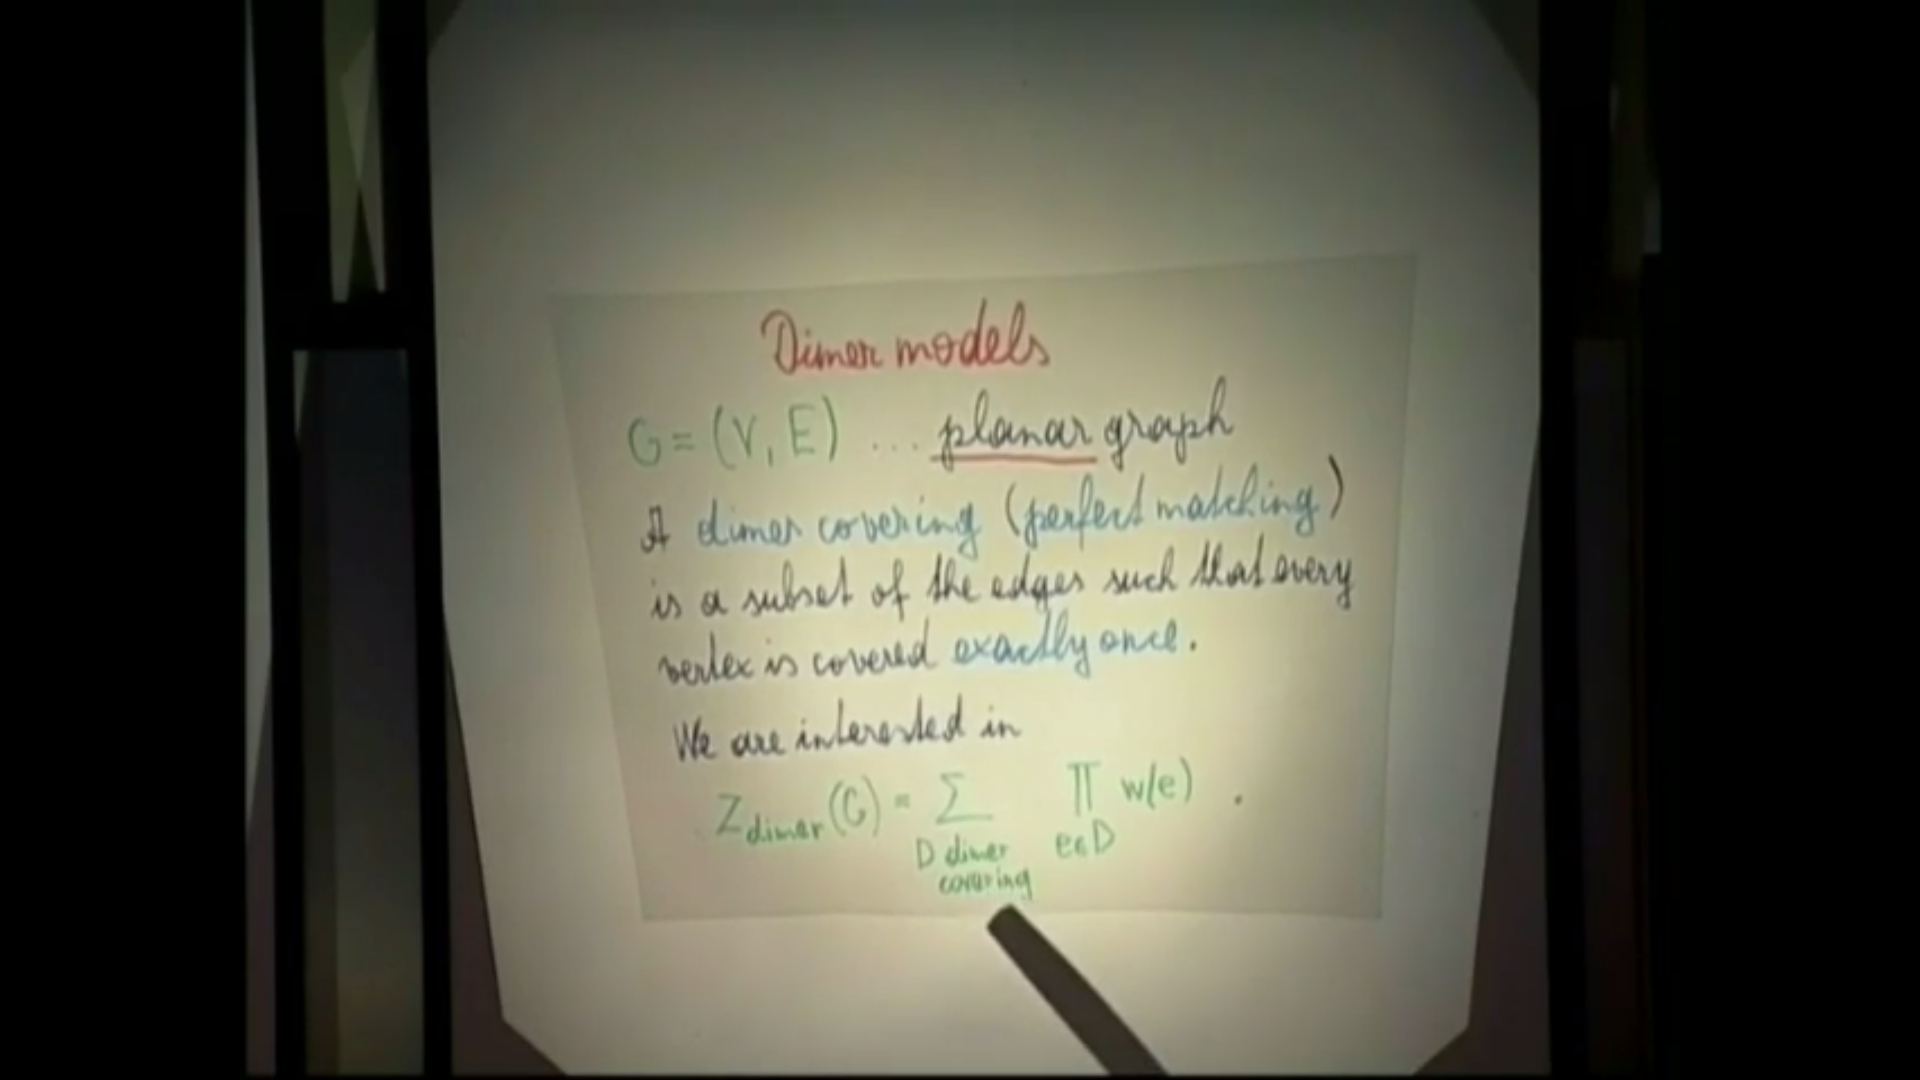 Dimer models
G = (V, E) ... planar graph
A dimer covering (perfect matching)
is a subset of the edges such that every
vertex is covered exactly once.
We are interested in
Z_dimer(G) = ∑ ∏ w(e) .
D dimer e∈D
covering